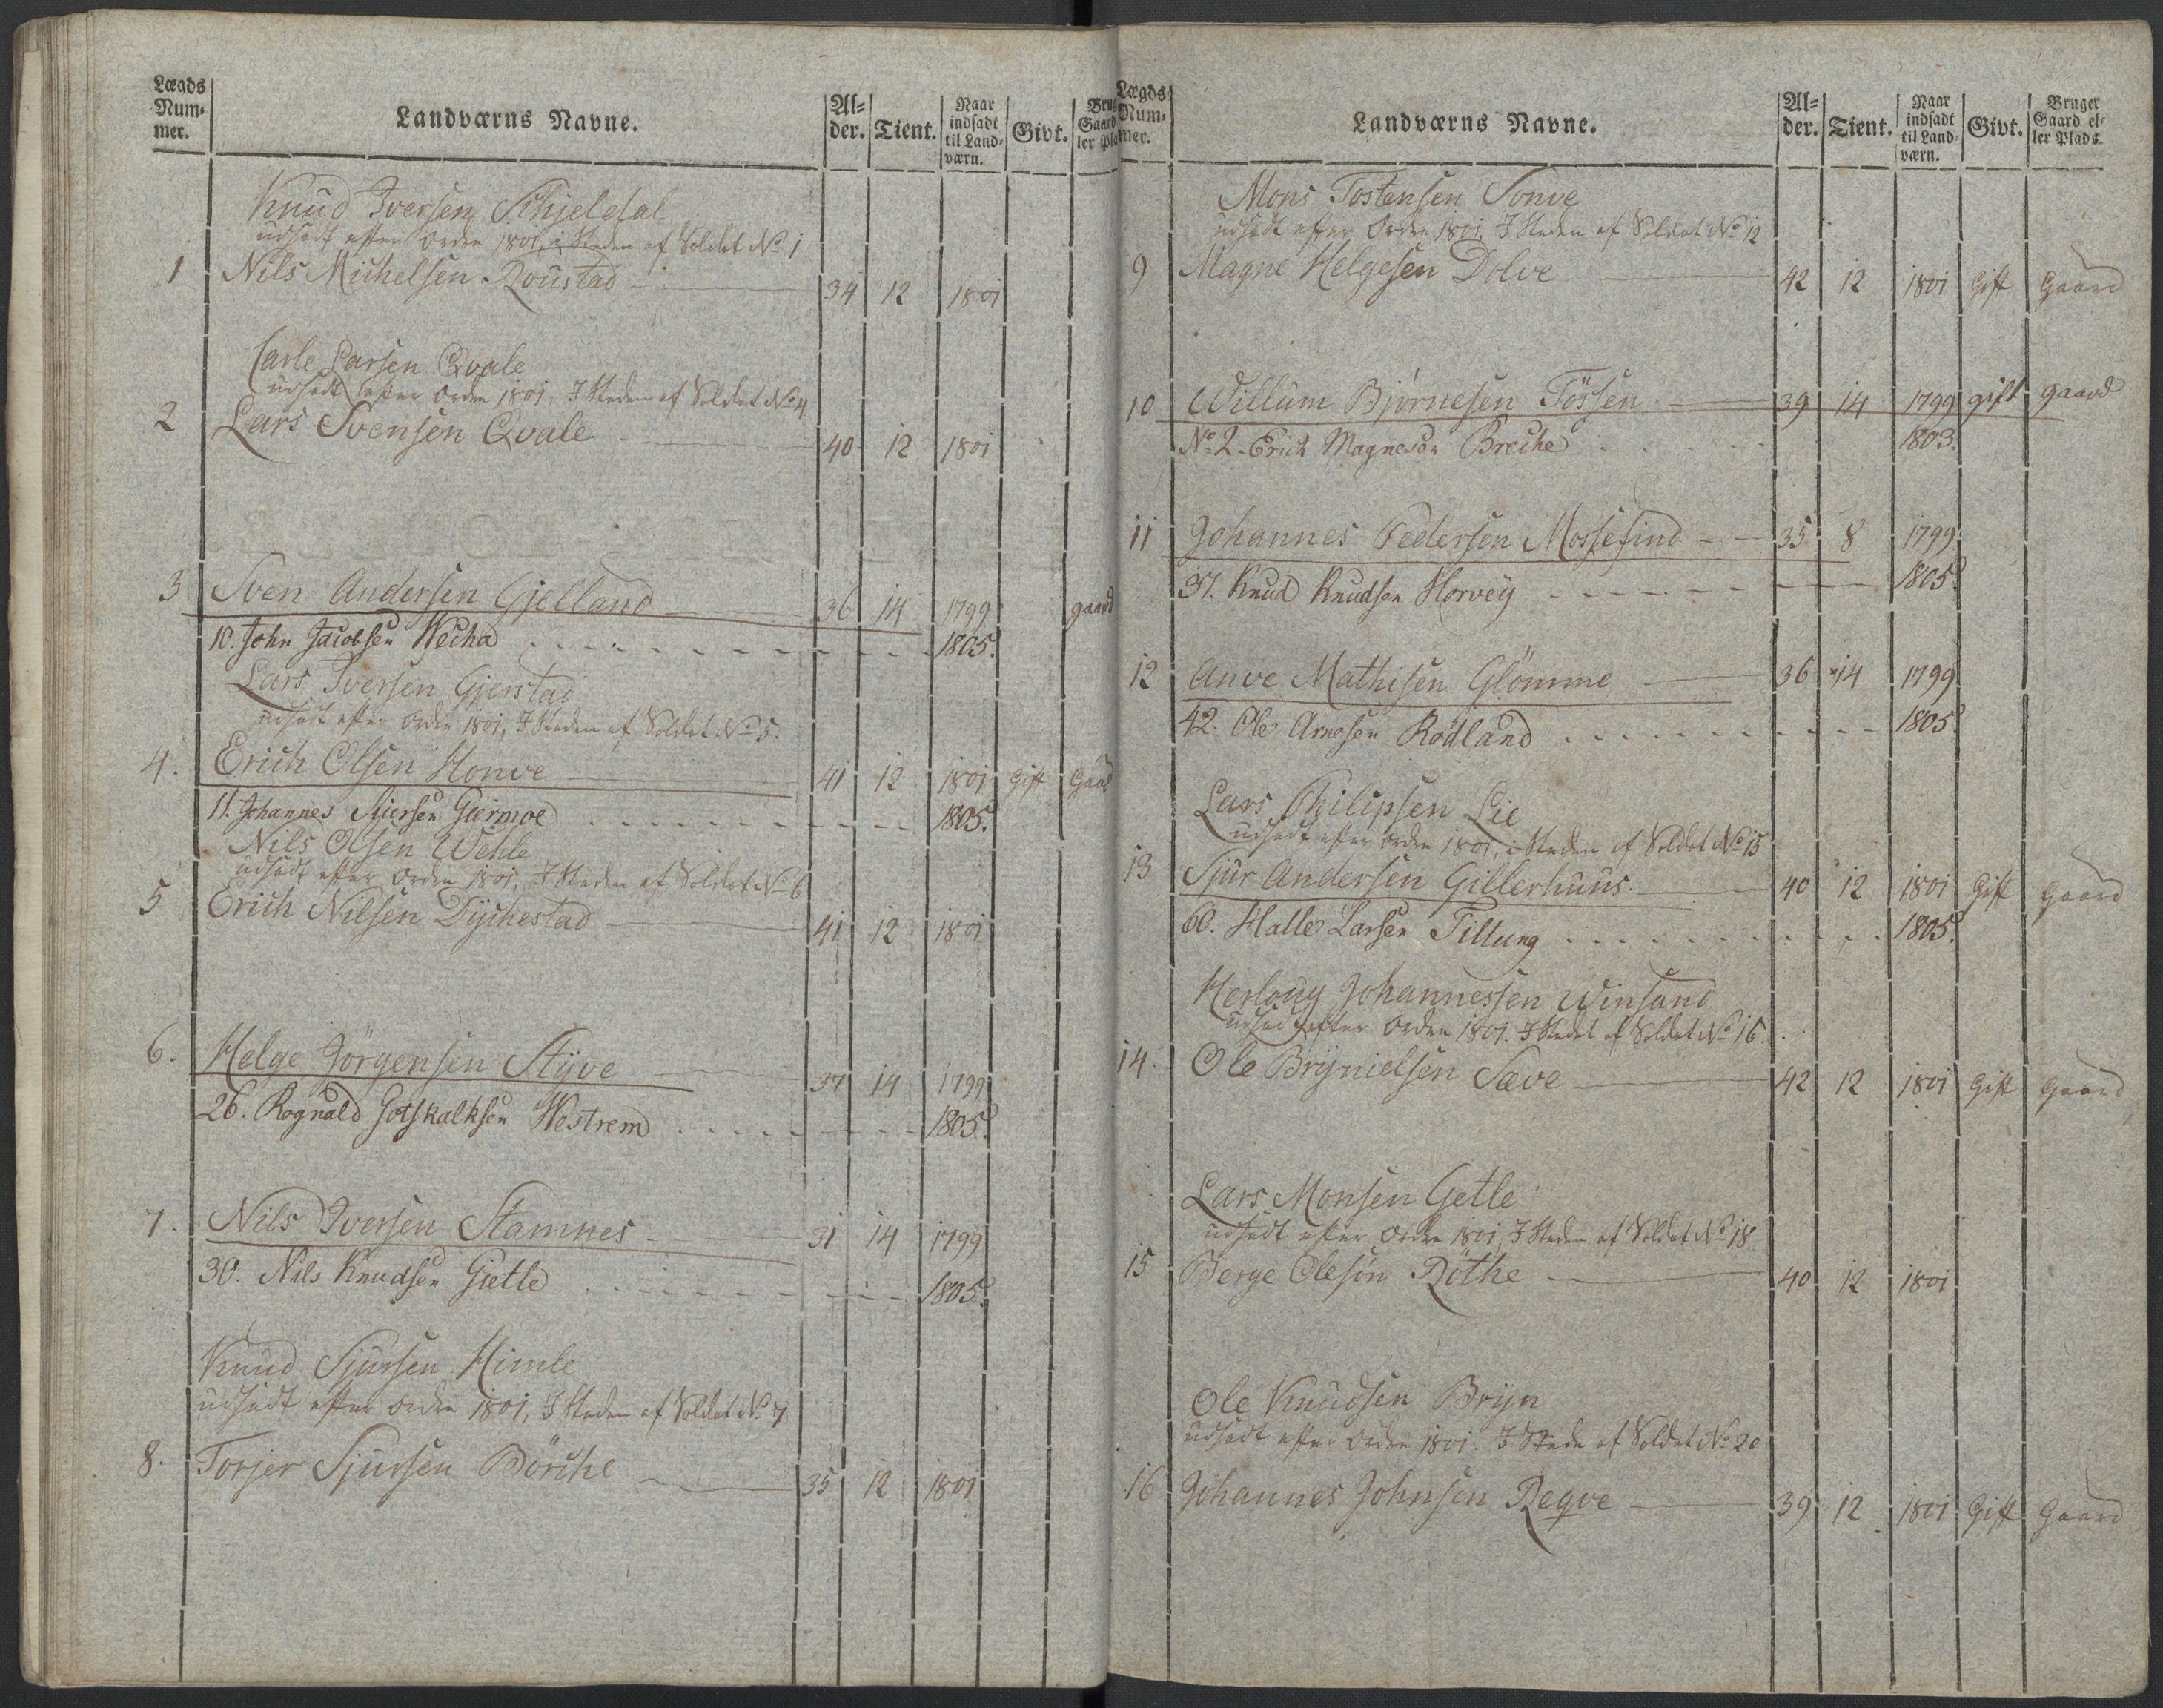 Lægds Num- mer. Landværns Navne. Al- der. Tient. Naar indsadt til Land- værn. Givt. Brug Gaard ler Pla
Knud Iversen Schjeldal
udsadt efter Ordre 1801, i Steden af Soldat No 1
1 Nils Michelsen Roustad 34 12 1801
Carle Larsen Qvale
udsadt efter Ordre 1801, I Steden af Soldat No 4
2 Lars Svensen Qvale 40 12 1801
3 Sven Andersen Gjelland 36 14 1799 gaard
10. John Jacobsen Wecha 1805.
Lars Iversen Gjerstad
udsadt efter Ordre 1801, I Steden af Soldat No 5.
4. Erich Olsen Honve 41 12 1801 Gift Gaard
11. Johannes Siursen Geirmoe 1805.
Nils Olsen Wehle
udsadt efter Ordre 1801, I Steden af Soldat No 6
5 Erich Nilsen Dÿchestad 41 12 1801
6. Helge Jörgensen Stÿve 37 14 1799
26. Rognald Gotskalksen Westrem 1805.
7. Nils Iversen Stamnes 31 14 1799
30. Nils Knudsen Gietle 1805.
Knud Sjursen Himle
udsadt efter Ordre 1801, I Steden af Soldat No 7
8. Torjer Sjursen Börche 35 12 1801
Lægds Num- mer. Landværns Navne. Al- der. Tient. Naar indsadt til Land- værn. Givt. Bruger Gaard el- ler Plads.
Mons Tostensen Sonve
udsadt efter Ordre 1801, I Steden af Soldat No 12
9 Magne Helgesen Dolve 42 12 1801 Gift Gaard
10 Willum Bjørnesen Tössen 39 14 1799 gift gaard
No 2. Erich Magnesen Breche 1803.
11 Johannes Pedersen Mossefind 35 8 1799
37. Knud Knudsen Horveÿ 1805.
12 Anve Mathisen Glömme 36 14 1799
42. Ole Arnesen Rödland 1805.
Lars Philipsen Lie
udsadt efter Ordre 1801, i Steden af Soldat No 15
13 Sjur Andersen Gillerhuus. 40 12 1801 Gift Gaard
60. Halle Larsen Tillung 1805.
Herloug Johannessen Winsand
udsadt efter Ordre 1801. I Stedet af Soldat No 16.
14. Ole Brÿnielsen Sæve 42 12 1801 Gift Gaard
Lars Monsen Getle
udsadt efter Ordre 1801, I Steden af Soldat No 18
15 Berge Olesön Röthe 40 12 1801
Ole Knudsen Brÿn
udsadt efter Ordre 1801. I Stede af Soldat No 20
16 Johannes Johnsen Reqve 39 12 1801 Gift Gaard